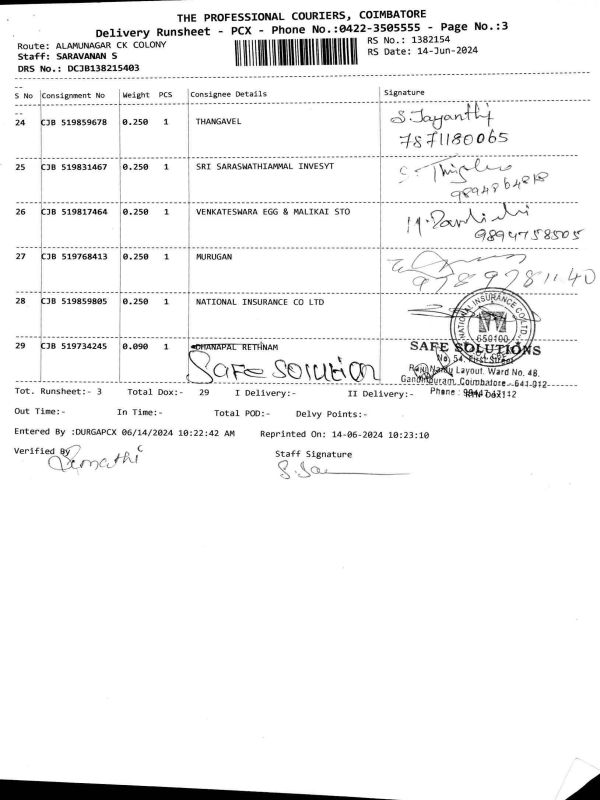 THE PROFESSIONAL COURIERS, COIMBATORE
Delivery Runsheet - PCX - Phone No.:0422-3505555 - Page No.:3
Route: ALAMUNAGAR CK COLONY
RS No.: 1382154
Staff: SARAVANAN S
RS Date: 14-Jun-2024
DRS No.: DCJB138215403
S No Consignment No Weight PCS Consignee Details Signature
24 CJB 519859678 0.250 1 THANGAVEL S. Jayanthi
7871180065
25 CJB 519831467 0.250 1 SRI SARASWATHIAMMAL INVESYT
9894864818
26 CJB 519817464 0.250 1 VENKATESWARA EGG & MALIKAI STO
9894758505
27 CJB 519768413 0.250 1 MURUGAN
9789781140
28 CJB 519859805 0.250 1 NATIONAL INSURANCE CO LTD
NATIONAL INSURANCE CO. LTD.
650100
29 CJB 519734245 0.090 1 DHANAPAL RETHNAM
Safe Solution
SAFE SOLUTIONS
No. 54, First Street
Layout, Ward No. 48,
Gandhipuram, Coimbatore - 641 012
Phone :
Tot. Runsheet:- 3 Total Dox:- 29 I Delivery:- II Delivery:-
Out Time:- In Time:- Total POD:- Delvy Points:-
Entered By :DURGAPCX 06/14/2024 10:22:42 AM Reprinted On: 14-06-2024 10:23:10
Verified By
Staff Signature